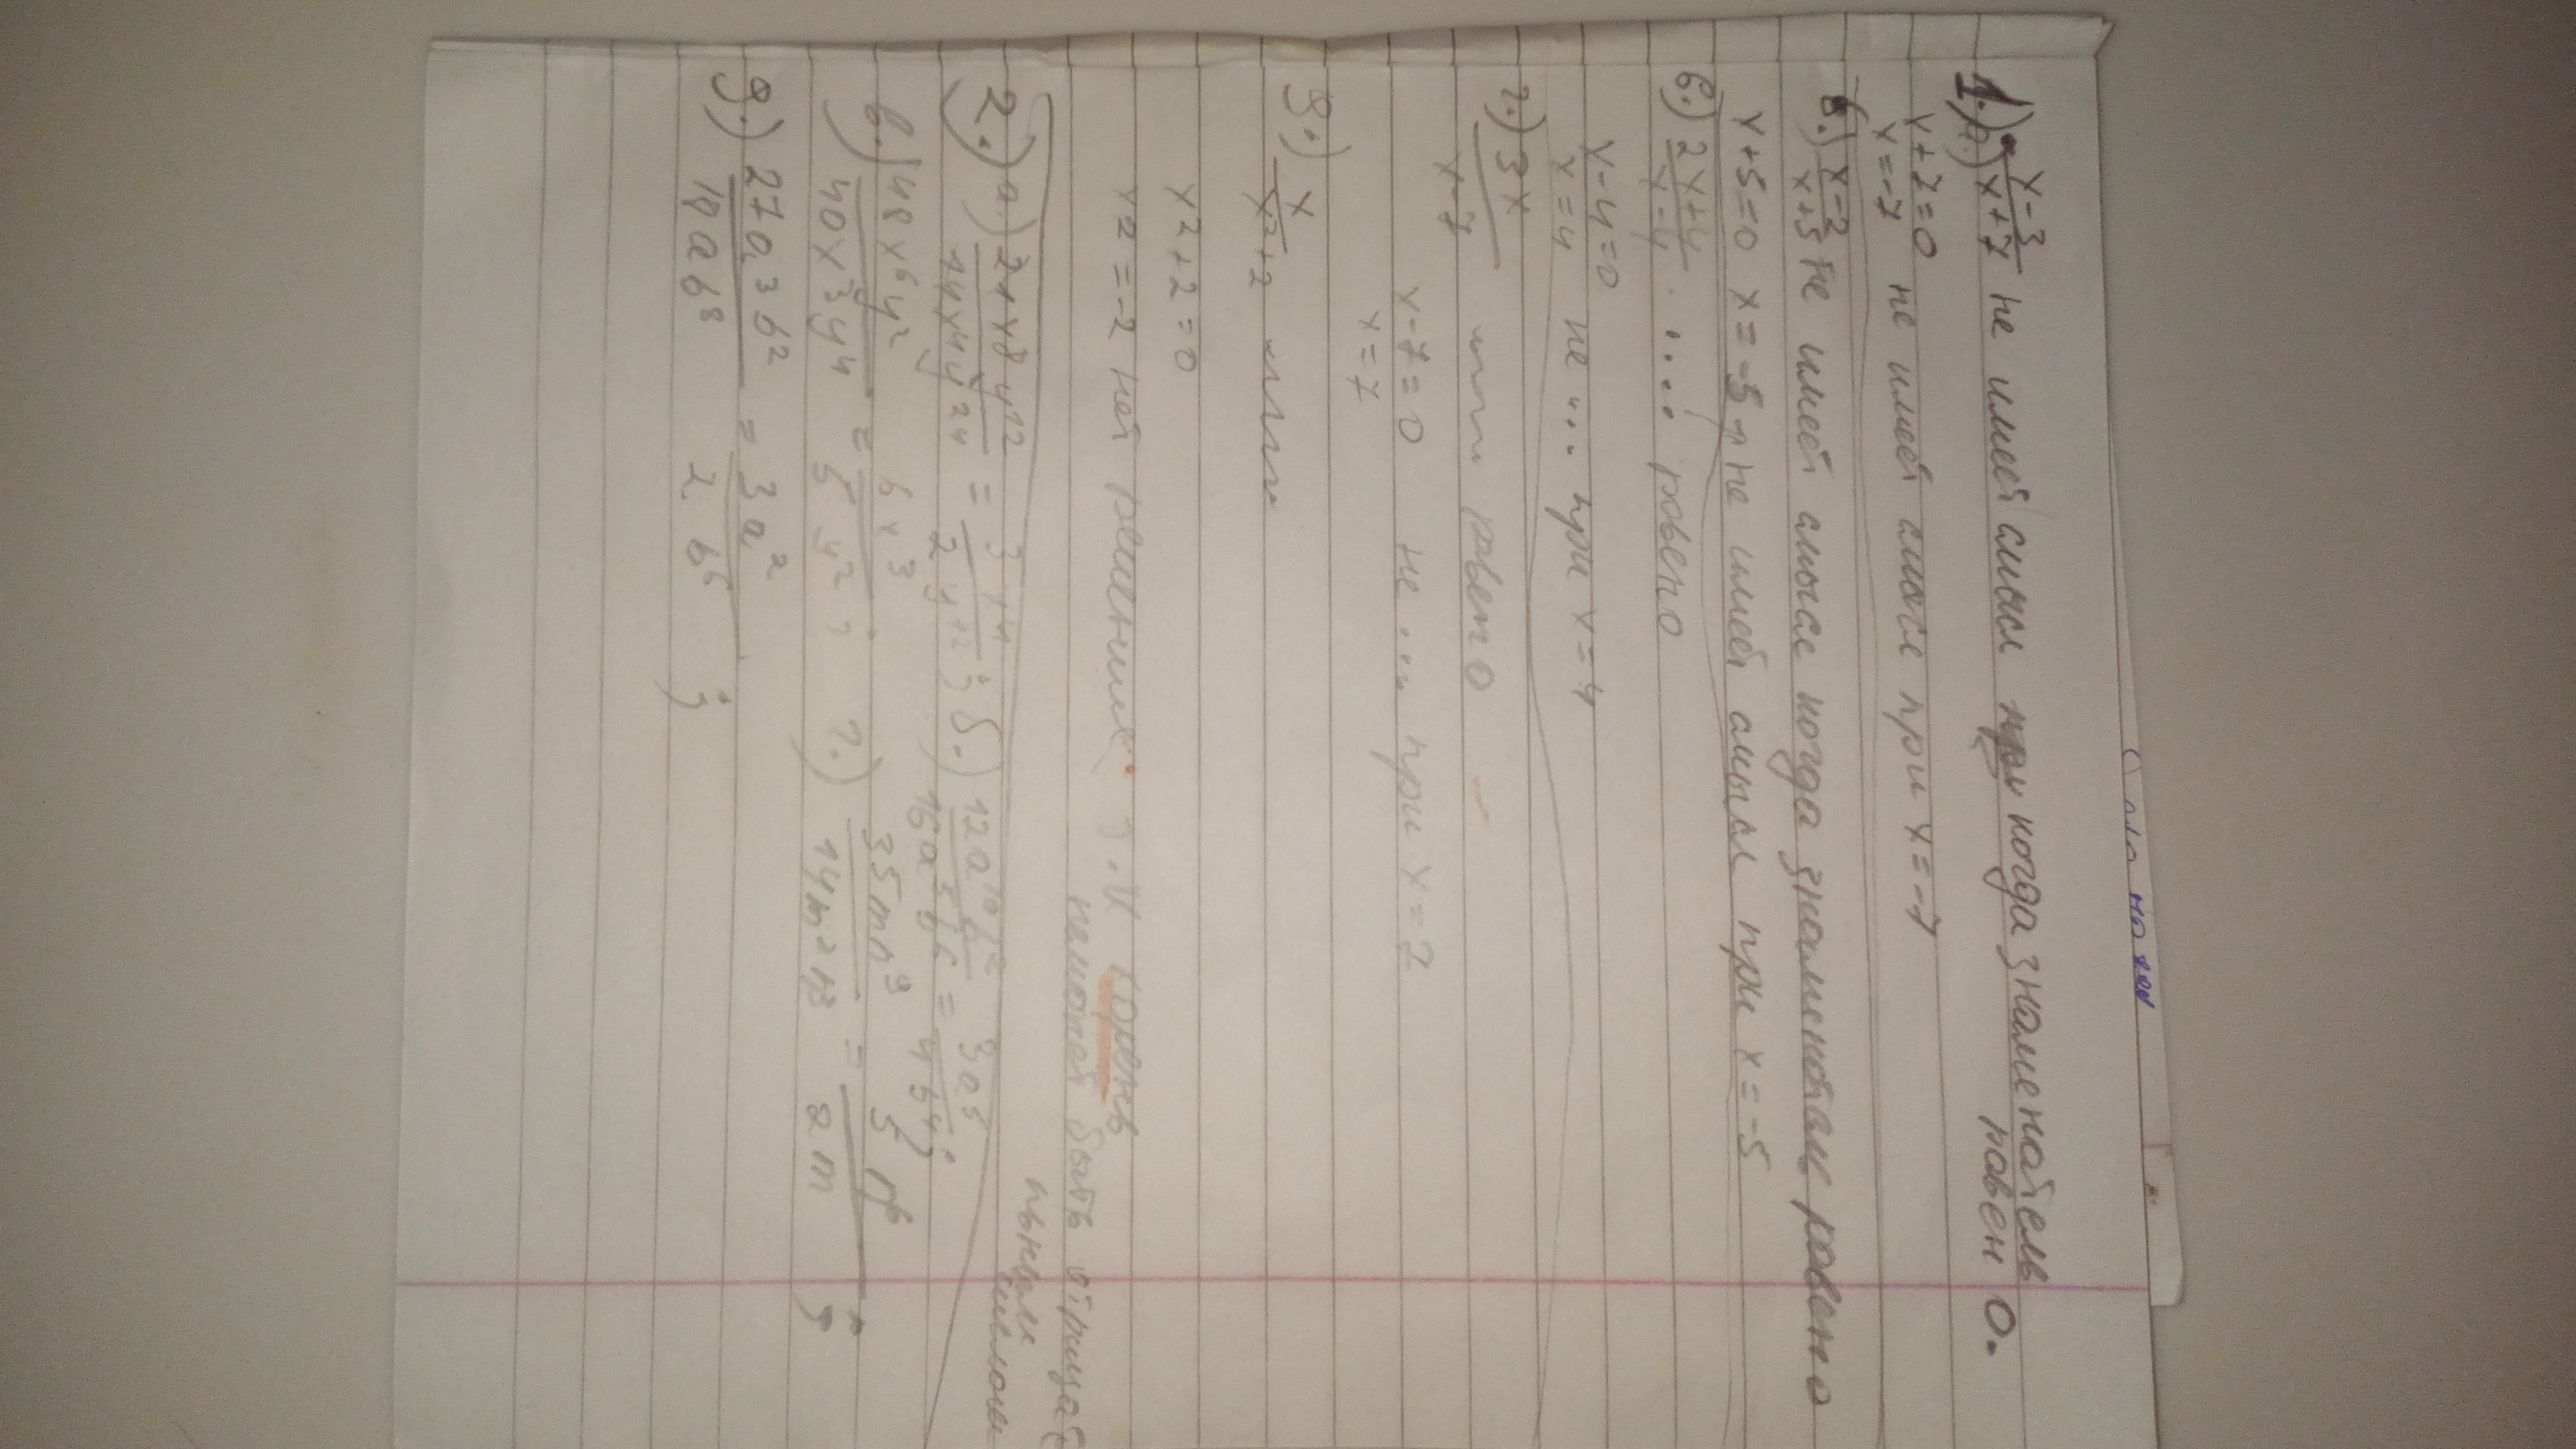 1.) а.) x-3 / x+7 не имеет смысл когда знаменатель
равен 0.
x+7=0
x=-7 не имеет смысл при x=-7
б.) x-2 / x+5 не имеет смысл когда знаменатель равено
x+5=0 x=-5, не имеет смысл при x=-5
в.) 2x+4 / x-4 ..... равено
x-4=0
x=4 не ... при x=4
г.) 3x / x-7 равено
x-7=0
x=7 не ... при x=7
д.) x / x²+2
x²+2=0
x²=-2 нет решение, т.к корень
неможет быть отрицат
ельным
числом
2.) а.) 21x⁸y¹² / 14x⁴y²⁴ = 3x⁴ / 2y¹² ; б.) 12a¹⁰b² / 16a⁵b⁶ = 3a⁵ / 4b⁴ ;
в.) 48x⁶y² / 40x³y⁴ = 6x³ / 5y² ; г.) 35mn⁹ / 14m²n³ = 5n⁶ / 2m ;
д.) 27a³b² / 18ab⁸ = 3a² / 2b⁶ ;